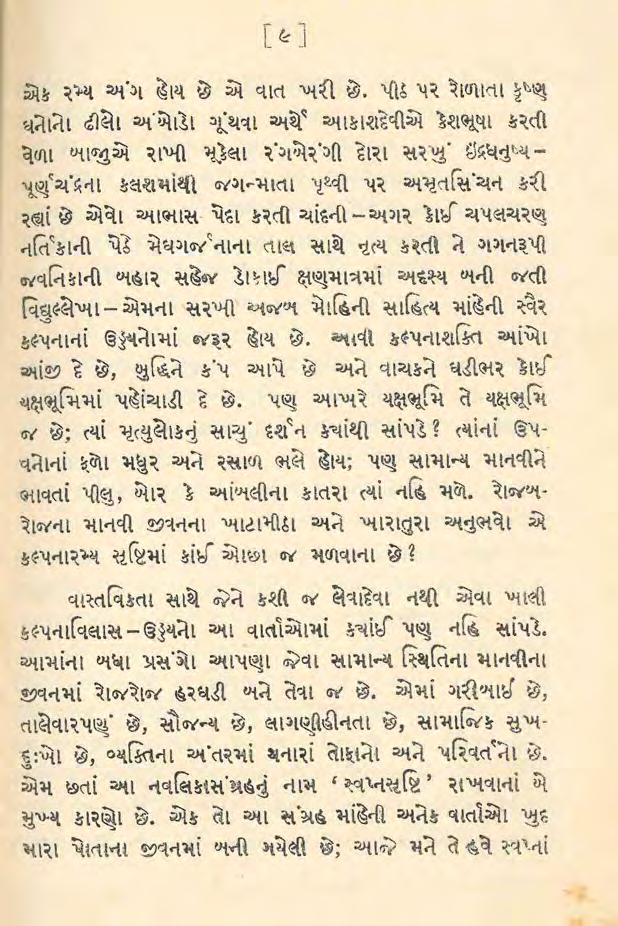 [ ૯ ]
એક રમ્ય અંગ હોય છે એ વાત ખરી છે. પીઠ પર રોળાતા કૃષ્ણ
ઘનોનો ઢીલો અંબોડો ગૂંથવા અર્થે આકાશદેવીએ કેશભૂષા કરતી
વેળા બાજુએ રાખી મૂકેલા રંગબેરંગી દોરા સરખું ઇંદ્રધનુષ્ય –
પૂર્ણચંદ્રના કલશમાંથી જગન્માતા પૃથ્વી પર અમૃતસિંચન કરી
રહ્યાં છે એવો આભાસ પેદા કરતી ચાંદની – અગર કોઈ ચપલચરણ
નર્તિકાની પેઠે મેઘગર્જનાના તાલ સાથે નૃત્ય કરતી ને ગગનરૂપી
જવનિકાની બહાર સહેજ ડોકાઈ ક્ષણમાત્રમાં અદૃશ્ય બની જતી
વિદ્યુલ્લેખા – એમના સરખી અજબ મોહિની સાહિત્ય માંહેની સ્વૈર
કલ્પનાનાં ઉડ્ડયનોમાં જરૂર હોય છે. આવી કલ્પનાશક્તિ આંખો
આંજી દે છે, બુદ્ધિને કંપ આપે છે અને વાચકને ઘડીભર કોઈ
યક્ષભૂમિમાં પહોંચાડી દે છે. પણ આખરે યક્ષભૂમિ તે યક્ષભૂમિ
જ છે; ત્યાં મૃત્યુલોકનું સાચું દર્શન ક્યાંથી સાંપડે? ત્યાંનાં ઉપ-
વનોનાં ફળો મધુર અને રસાળ ભલે હોય; પણ સામાન્ય માનવીને
ભાવતાં પીલુ, બોર કે આંબલીના કાતરા ત્યાં નહિ મળે. રોજબ-
રોજના માનવી જીવનના ખાટામીઠા અને ખારાતુરા અનુભવો એ
કલ્પનારમ્ય સૃષ્ટિમાં કાંઈ ઓછા જ મળવાના છે?
વાસ્તવિકતા સાથે જેને કશી જ લેવાદેવા નથી એવા ખાલી
કલ્પનાવિલાસ – ઉડ્ડયનો આ વાર્તાઓમાં ક્યાંઈ પણ નહિ સાંપડે.
આમાંના બધા પ્રસંગો આપણા જેવા સામાન્ય સ્થિતિના માનવીના
જીવનમાં રોજરોજ હરઘડી બને તેવા જ છે. એમાં ગરીબાઈ છે,
તાલેવારપણું છે, સૌજન્ય છે, લાગણીહીનતા છે, સામાજિક સુખ-
દુઃખો છે, વ્યક્તિના અંતરમાં થનારાં તોફાનો અને પરિવર્તનો છે.
એમ છતાં આ નવલિકાસંગ્રહનું નામ ‘ સ્વપ્નસૃષ્ટિ ’ રાખવાનાં બે
મુખ્ય કારણો છે. એક તો આ સંગ્રહ માંહેની અનેક વાર્તાઓ ખુદ
મારા પોતાના જીવનમાં બની ગયેલી છે; આજે મને તે હવે સ્વપ્નાં